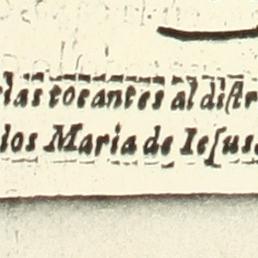 las tocantes al distr
los Maria de Iesus